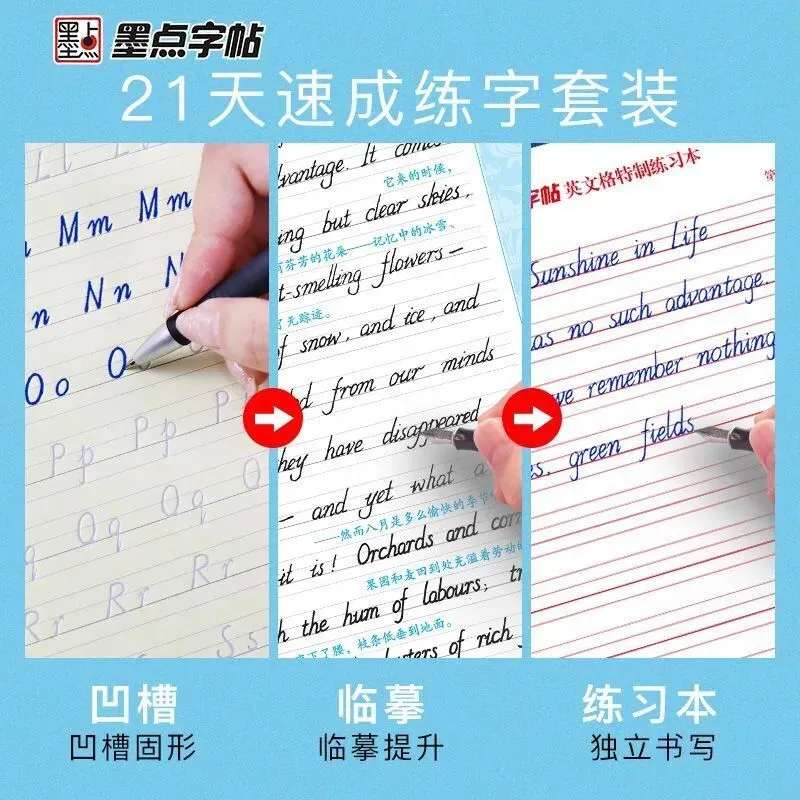 墨点 墨点字帖
21天速成练字套装
Ll Ll
Mm Mm
n Nn N
Oo O
Pp Pp P
Oq Oq O
Rr Rr Rr
Ss
vantage. It comes
它来的时候，
ing but clear skies,
芬芳的花朵——记忆中的冰雪、
t-smelling flowers—
了无踪迹。
of snow, and ice, and
from our minds
hey have disappeared
— and yet what a
——然而八月是多么愉快的季节
it is! Orchards and corn
果园和麦田到处充溢着劳动的
h the hum of labours; tr
下了腰，枝条低垂到地面。
usters of rich
字帖 英文格特制练习本
第
Sunshine in Life
as no such advantage.
we remember nothing
es, green fields
凹槽
凹槽固形
临摹
临摹提升
练习本
独立书写